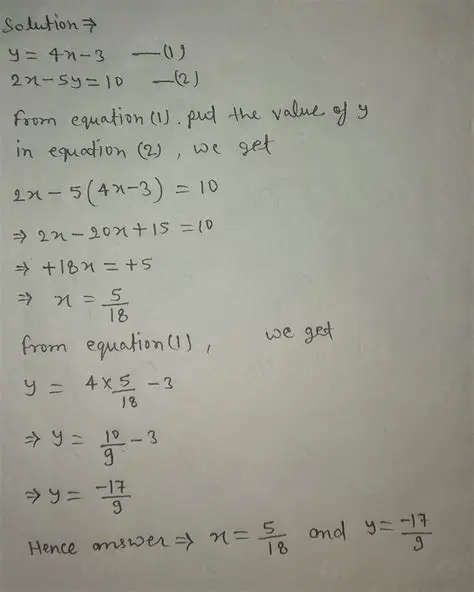 Solution ⇒
y = 4x - 3 —(1)
2x - 5y = 10 —(2)
from equation (1). put the value of y
in equation (2), we get
2x - 5(4x-3) = 10
⇒ 2x - 20x + 15 = 10
⇒ +18x = +5
⇒ x = 5/18
from equation (1), we get
y = 4 × 5/18 - 3
⇒ y = 10/9 - 3
⇒ y = -17/9
Hence answer ⇒ x = 5/18 and y = -17/9